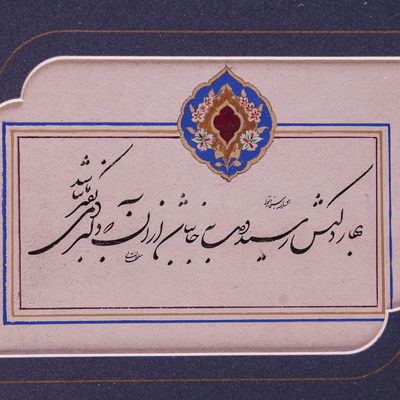 بهار دلکش رسید و دل به جا نباشد از آنکه دلبر دمی بفکر ما نباشد